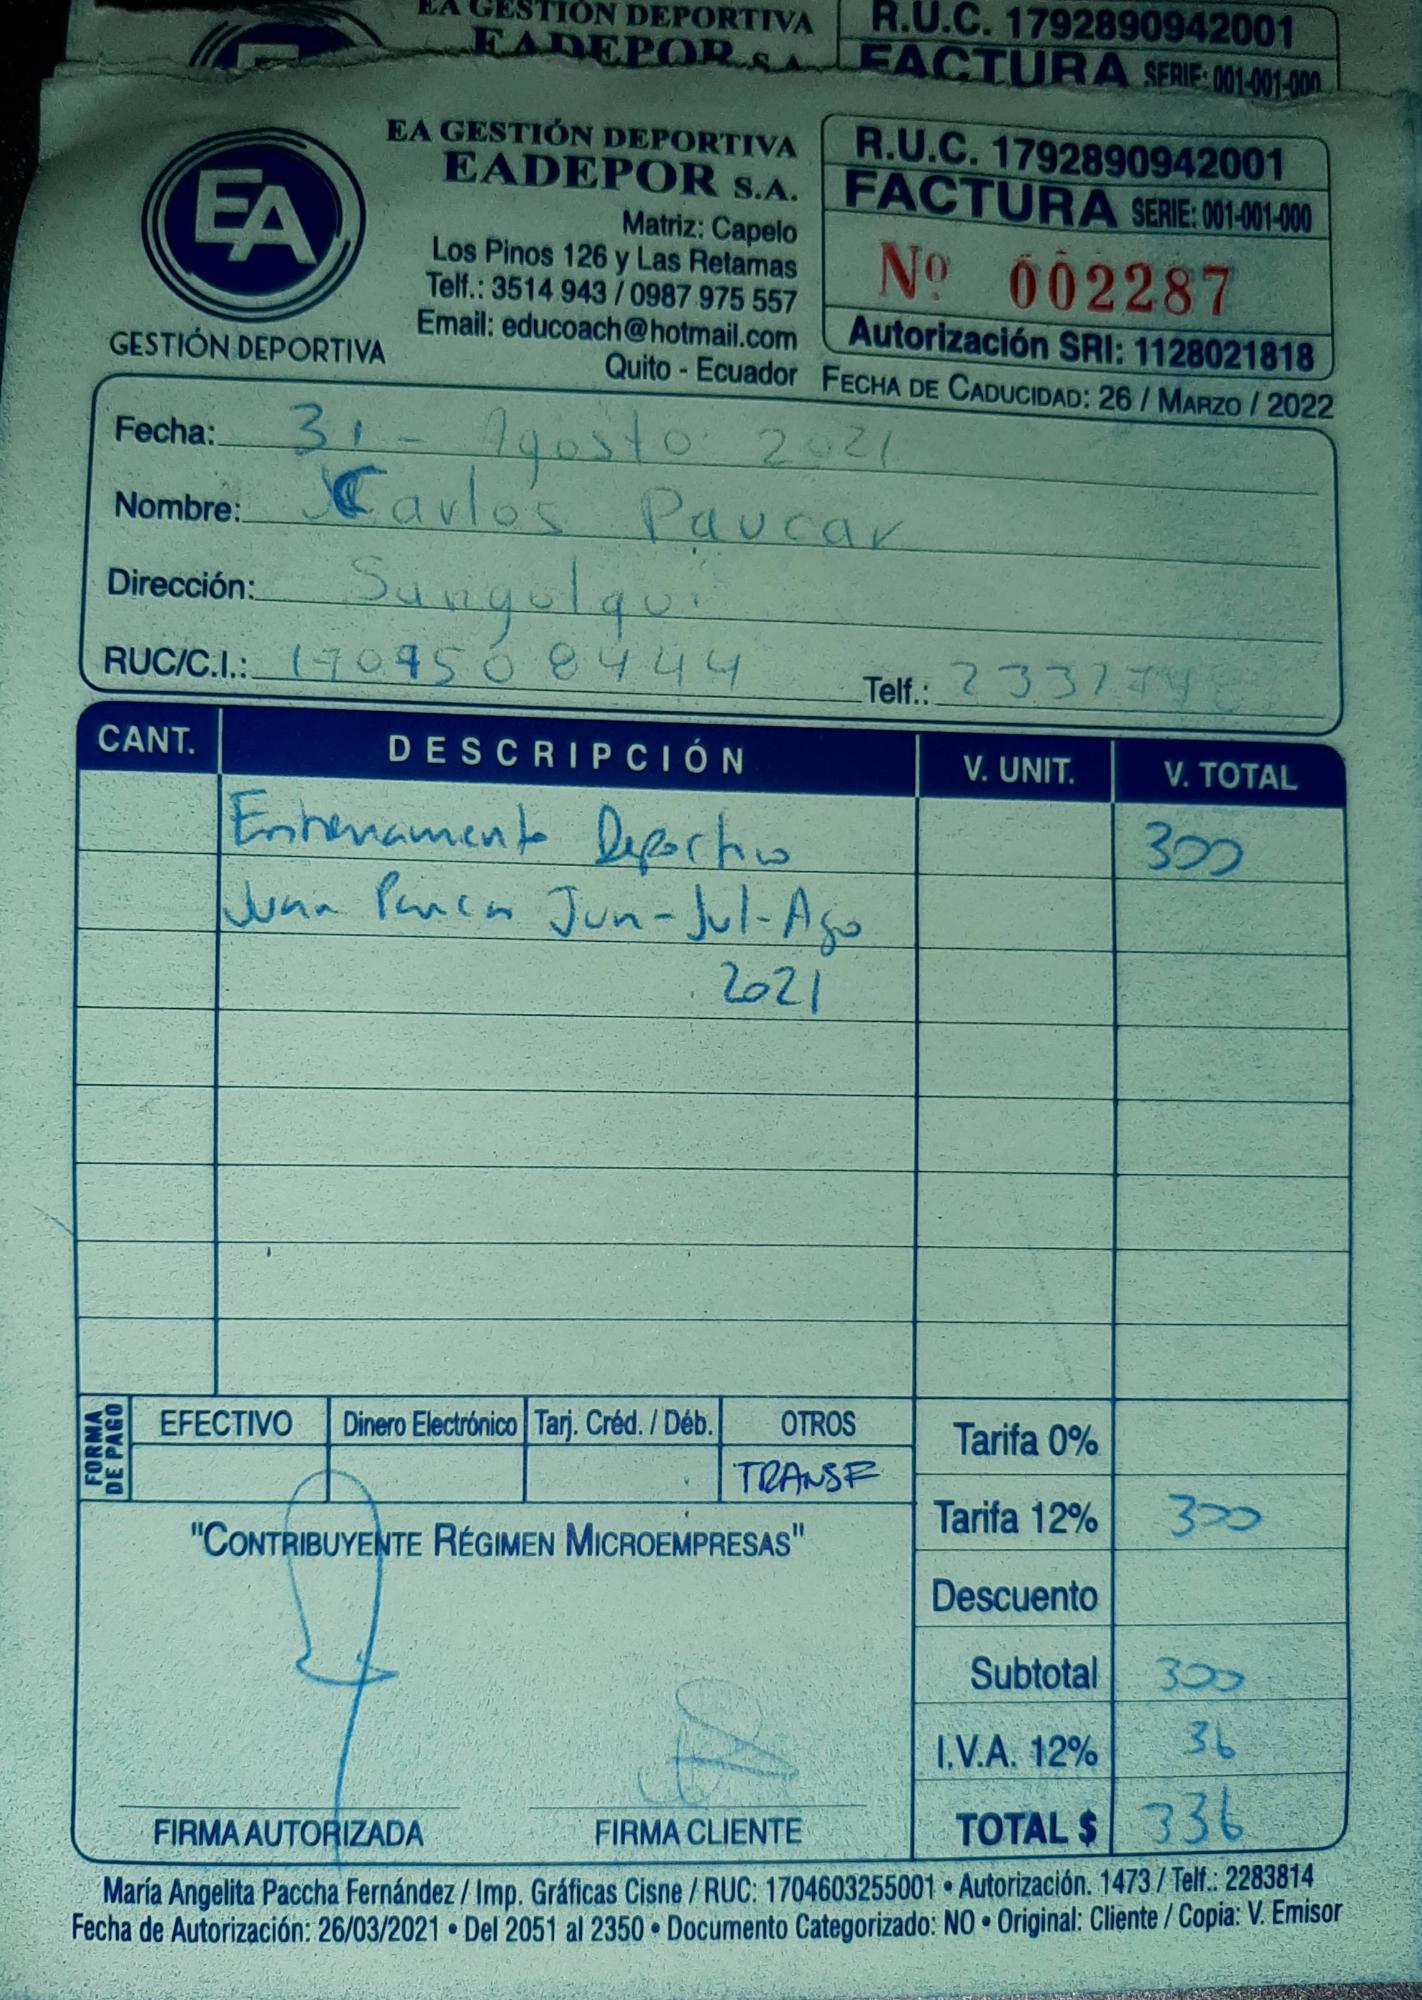 EA GESTIÓN DEPORTIVA
EADEPOR S.A.
R.U.C. 1792890942001
FACTURA SERIE: 001-001-000
EA
GESTIÓN DEPORTIVA
EA GESTIÓN DEPORTIVA
EADEPOR S.A.
Matriz: Capelo
Los Pinos 126 y Las Retamas
Telf.: 3514 943 / 0987 975 557
Email: educoach@hotmail.com
Quito - Ecuador
R.U.C. 1792890942001
FACTURA SERIE: 001-001-000
Nº 002287
Autorización SRI: 1128021818
FECHA DE CADUCIDAD: 26 / MARZO / 2022
Fecha: 31 - Agosto 2021
Nombre: Carlos Paucar
Dirección: Sangolqui
RUC/C.I.: 1709508444 Telf.:
CANT. DESCRIPCIÓN V. UNIT. V. TOTAL
Entrenamento Deportivo 300
Juan Paucar Jun-Jul-Ago
2021
FORMA DE PAGO
EFECTIVO Dinero Electrónico Tarj. Créd. / Déb. OTROS
TRANSF
Tarifa 0%
Tarifa 12% 300
Descuento
Subtotal 300
I.V.A. 12% 36
TOTAL $ 336
"CONTRIBUYENTE RÉGIMEN MICROEMPRESAS"
FIRMA AUTORIZADA FIRMA CLIENTE
María Angelita Paccha Fernández / Imp. Gráficas Cisne / RUC: 1704603255001 • Autorización. 1473 / Telf.: 2283814
Fecha de Autorización: 26/03/2021 • Del 2051 al 2350 • Documento Categorizado: NO • Original: Cliente / Copia: V. Emisor